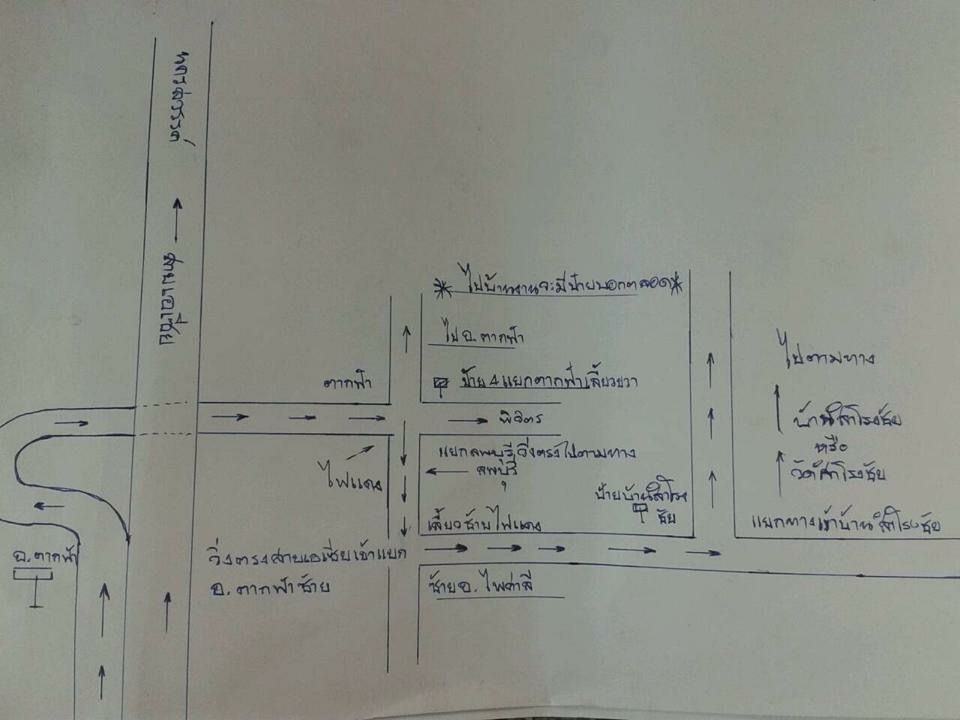 นครสวรรค์
สายเอเชีย
* ไปบ้านงานจะมีป้ายบอกตลอด *
ไป อ. ตากฟ้า
ป้าย 4 แยกตากฟ้าเลี้ยวขวา
ตากฟ้า
พิจิตร
ไฟแดง
แยกลพบุรี วิ่งตรงไปตามทาง
ลพบุรี
ป้ายบ้านสำโรง
ชัย
เลี้ยวซ้ายไฟแดง
วิ่งตรงสายเอเชียเข้าแยก
อ. ตากฟ้าซ้าย
ซ้าย อ. ไพศาลี
อ. ตากฟ้า
ไปตามทาง
บ้านสำโรงชัย
หรือ
วัดสำโรงชัย
แยกทางเข้าบ้านสำโรงชัย